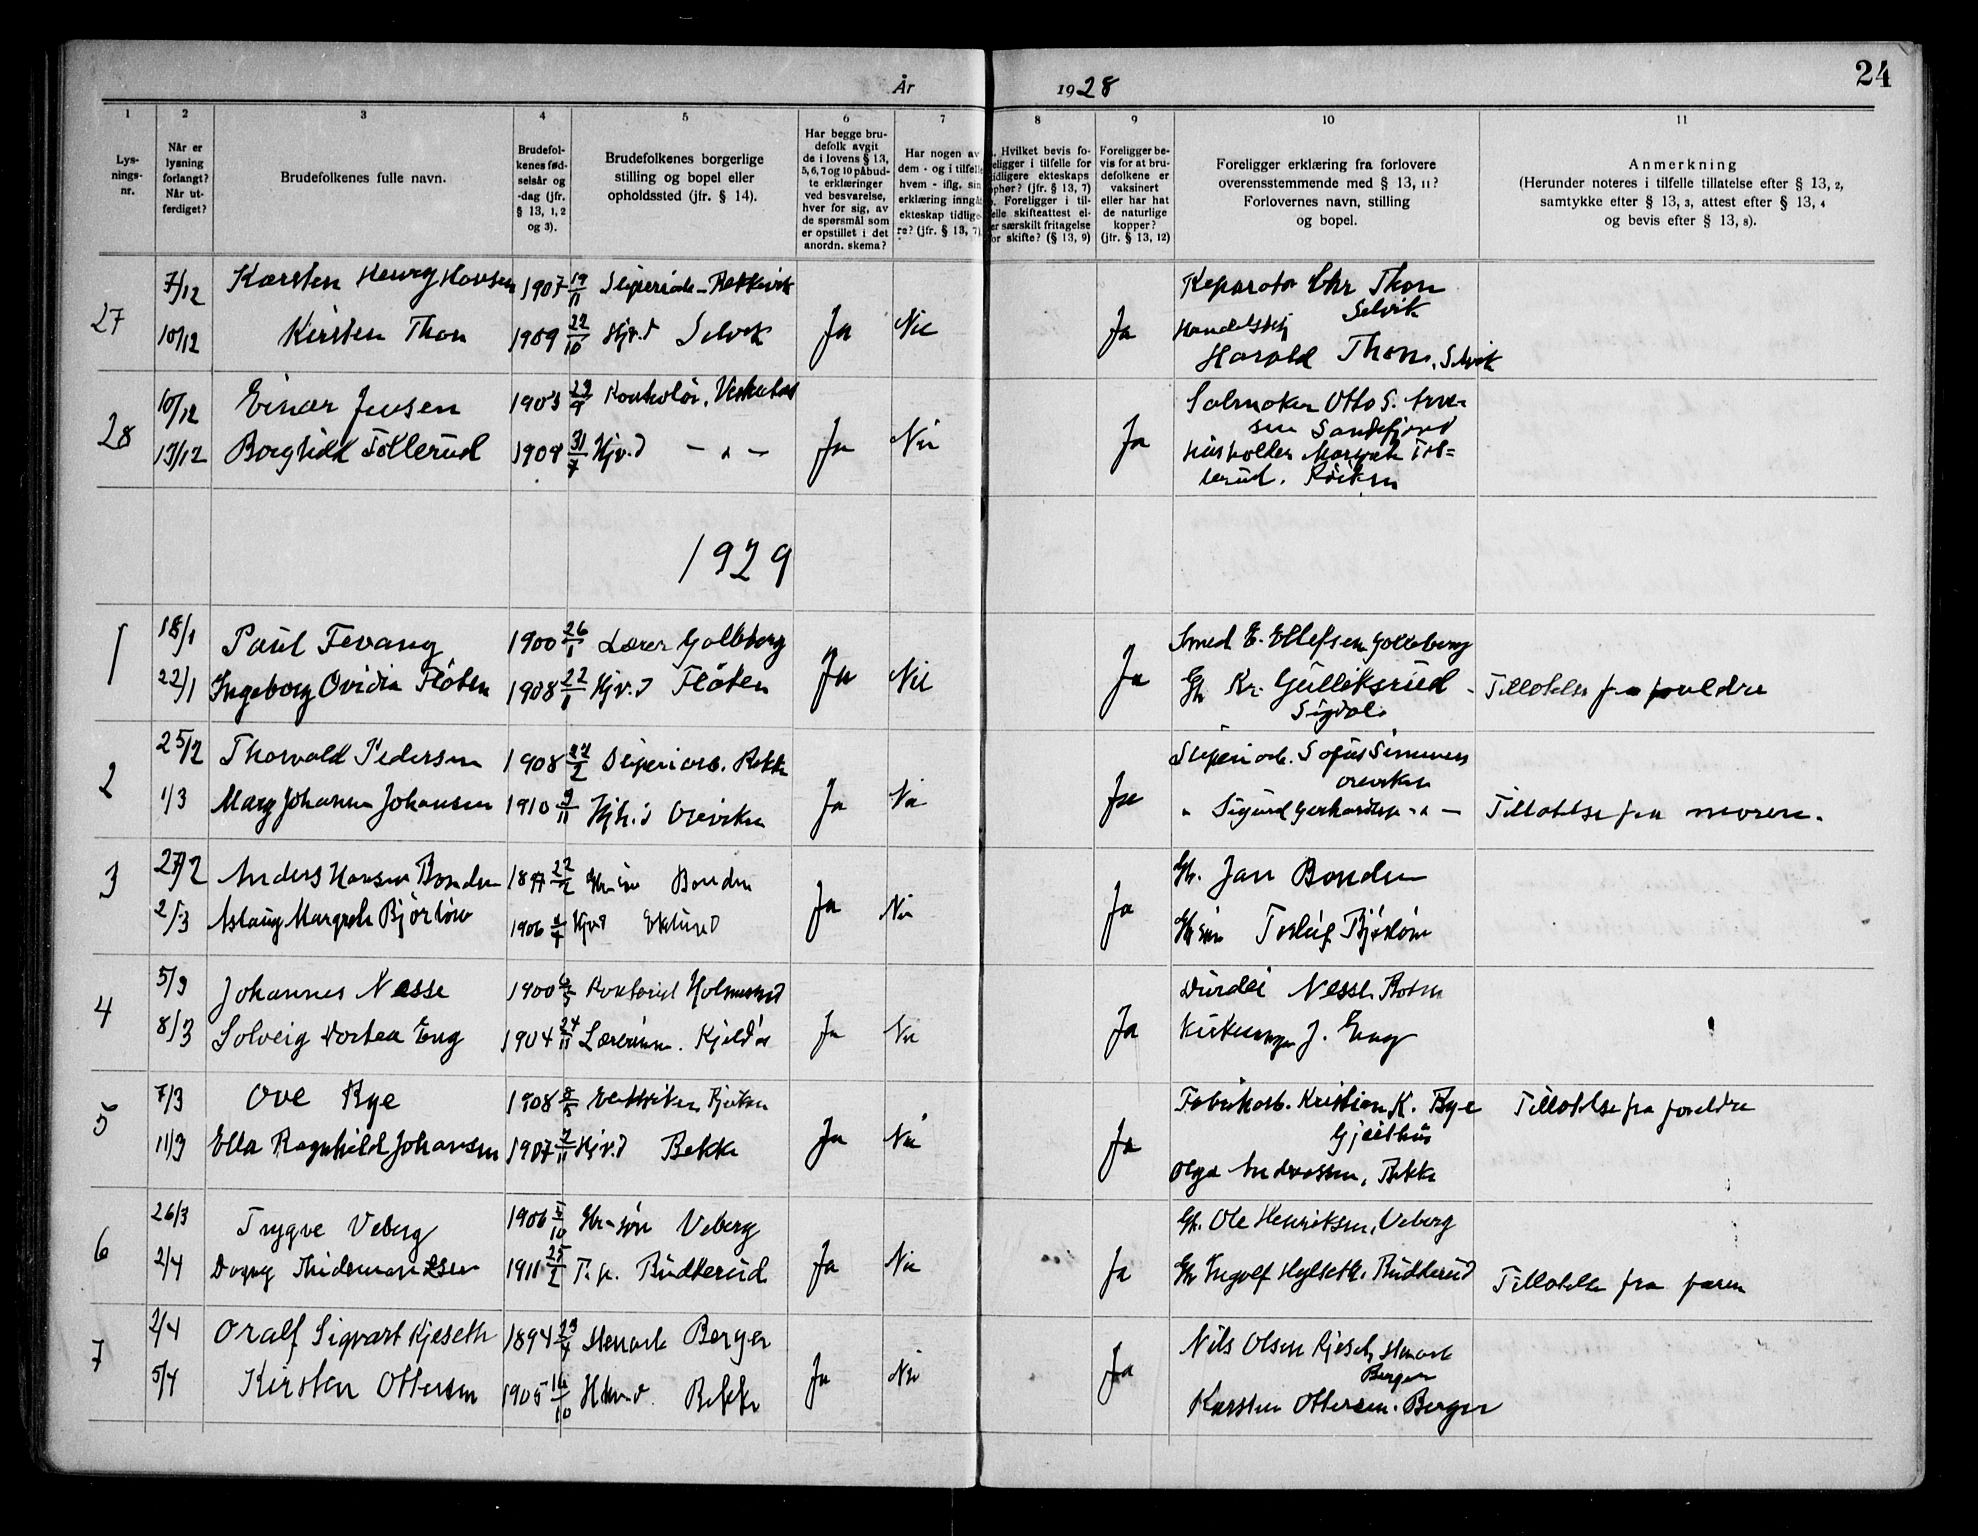 24
År 1928
1 2 3 4 5 6 7 8 9 10 11
Lys-
nings-
nr.
Når er
lysning
forlangt?
Når ut-
ferdiget?
Brudefolkenes fulle navn.
Brudefol-
kenes fød-
selsår og
-dag (jfr.
§ 13, 1, 2
og 3).
Brudefolkenes borgerlige
stilling og bopel eller
opholdssted (jfr. § 14).
Har begge bru-
defolk avgit
de i lovens § 13,
5, 6, 7 og 10 påbud-
te erklæringer
ved besvarelse,
hver for sig, av
de spørsmål som
er opstillet i det
anordn. skema?
Har nogen av
dem - og i tilfelle
hvem - iflg. sin
erklæring inngåt
ekteskap tidlige-
re? (jfr. § 13, 7)
Hvilket bevis fo-
religger i tilfelle for
tidligere ekteskaps
ophør? (jfr. § 13, 7)
Foreligger i til-
felle skifteattest el-
er særskilt fritagelse
for skifte? (§ 13, 9)
Foreligger be-
vis for at bru-
defolkene er
vaksinert
eller har hat
de naturlige
kopper?
(jfr. § 13, 12)
Foreligger erklæring fra forlovere
overensstemmende med § 13, 11?
Forlovernes navn, stilling
og bopel.
Anmerkning
(Herunder noteres i tilfelle tillatelse efter § 13, 2,
samtykke efter § 13, 3, attest efter § 13, 4
og bevis efter § 13, 8).
27 7/12 Karsten Henry Hansen 1907 19/11 Reparatør Chr Thon
Selvik
10/12 Kirsten Thon 1909 22/10 Hjv.d Selvik Ja Nei Ja
Harald Thon, Selvik
28 10/12 Einar Jensen 1903 23/9 Kontrolør, Salmaker Otto S.
Sandefjord
13/12 Borghild Follerud 31/7 Hjv.d — " — Ja Nei Ja Husholder
Røiken
1929
1 18/1 Paul Fevang 1900 26/1 Lærer Golleberg Smed E. Ellefsen Golleberg
22/1 Ingeborg Ovidia Fløten 1908 22/1 Hjv.d Fløten Ja Nei Ja Gb Kr. Gulliksrud Tillatelse fra foreldre
Sigdal
2 25/2 Thorvald Pedersen 1908 Sliperiarb. Bekke Sliperiarb. Sofus Simensen
1/3 Mary Johanne Johansen 1910 9/11 Ja Nei Ja " Sigurd Gerhardsen Tillatelse fra moren.
3 27/2 Anders Hansen Bonden 22/2 Bonden Gb. Jan Bonden
2/3 Aslaug Margrete 1906 Hjv.d Eklund Ja Nei Ja
4 5/3 Johannes Nesse 1900 Nesse
8/3 Solveig Dortea Eng 1904 24/11 Lærerinne. Kjeldås Ja Nei Ja Kirkesanger J. Eng
5 7/3 Ove Rye 1908 Fabrikarb. Kristian K. Rye Tillatelse fra foreldre
Gjeithus
11/3 Ella Ragnhild Johansen 1907 Hjv.d Bekke Ja Nei Ja Olga Andreassen, Bekke
6 26/3 Trygve Veberg 1906 Gbr-søn Veberg Gb. Ole Henriksen, Veberg
2/4 Dagny Thidemandsen 1911 25/2 Budkerud Ja Nei Ja Gb Ingolf Hylseth, Budkerud Tillatelse fra faren
7 2/4 Oralf Sigvart Kjeseth 1894 Stenarb Berger Nils Olsen Kjeseth Stenarb
Berger
5/4 Kirsten Ottersen 1905 16/10 Bekke Ja Nei Ja Karsten Ottersen. Berger